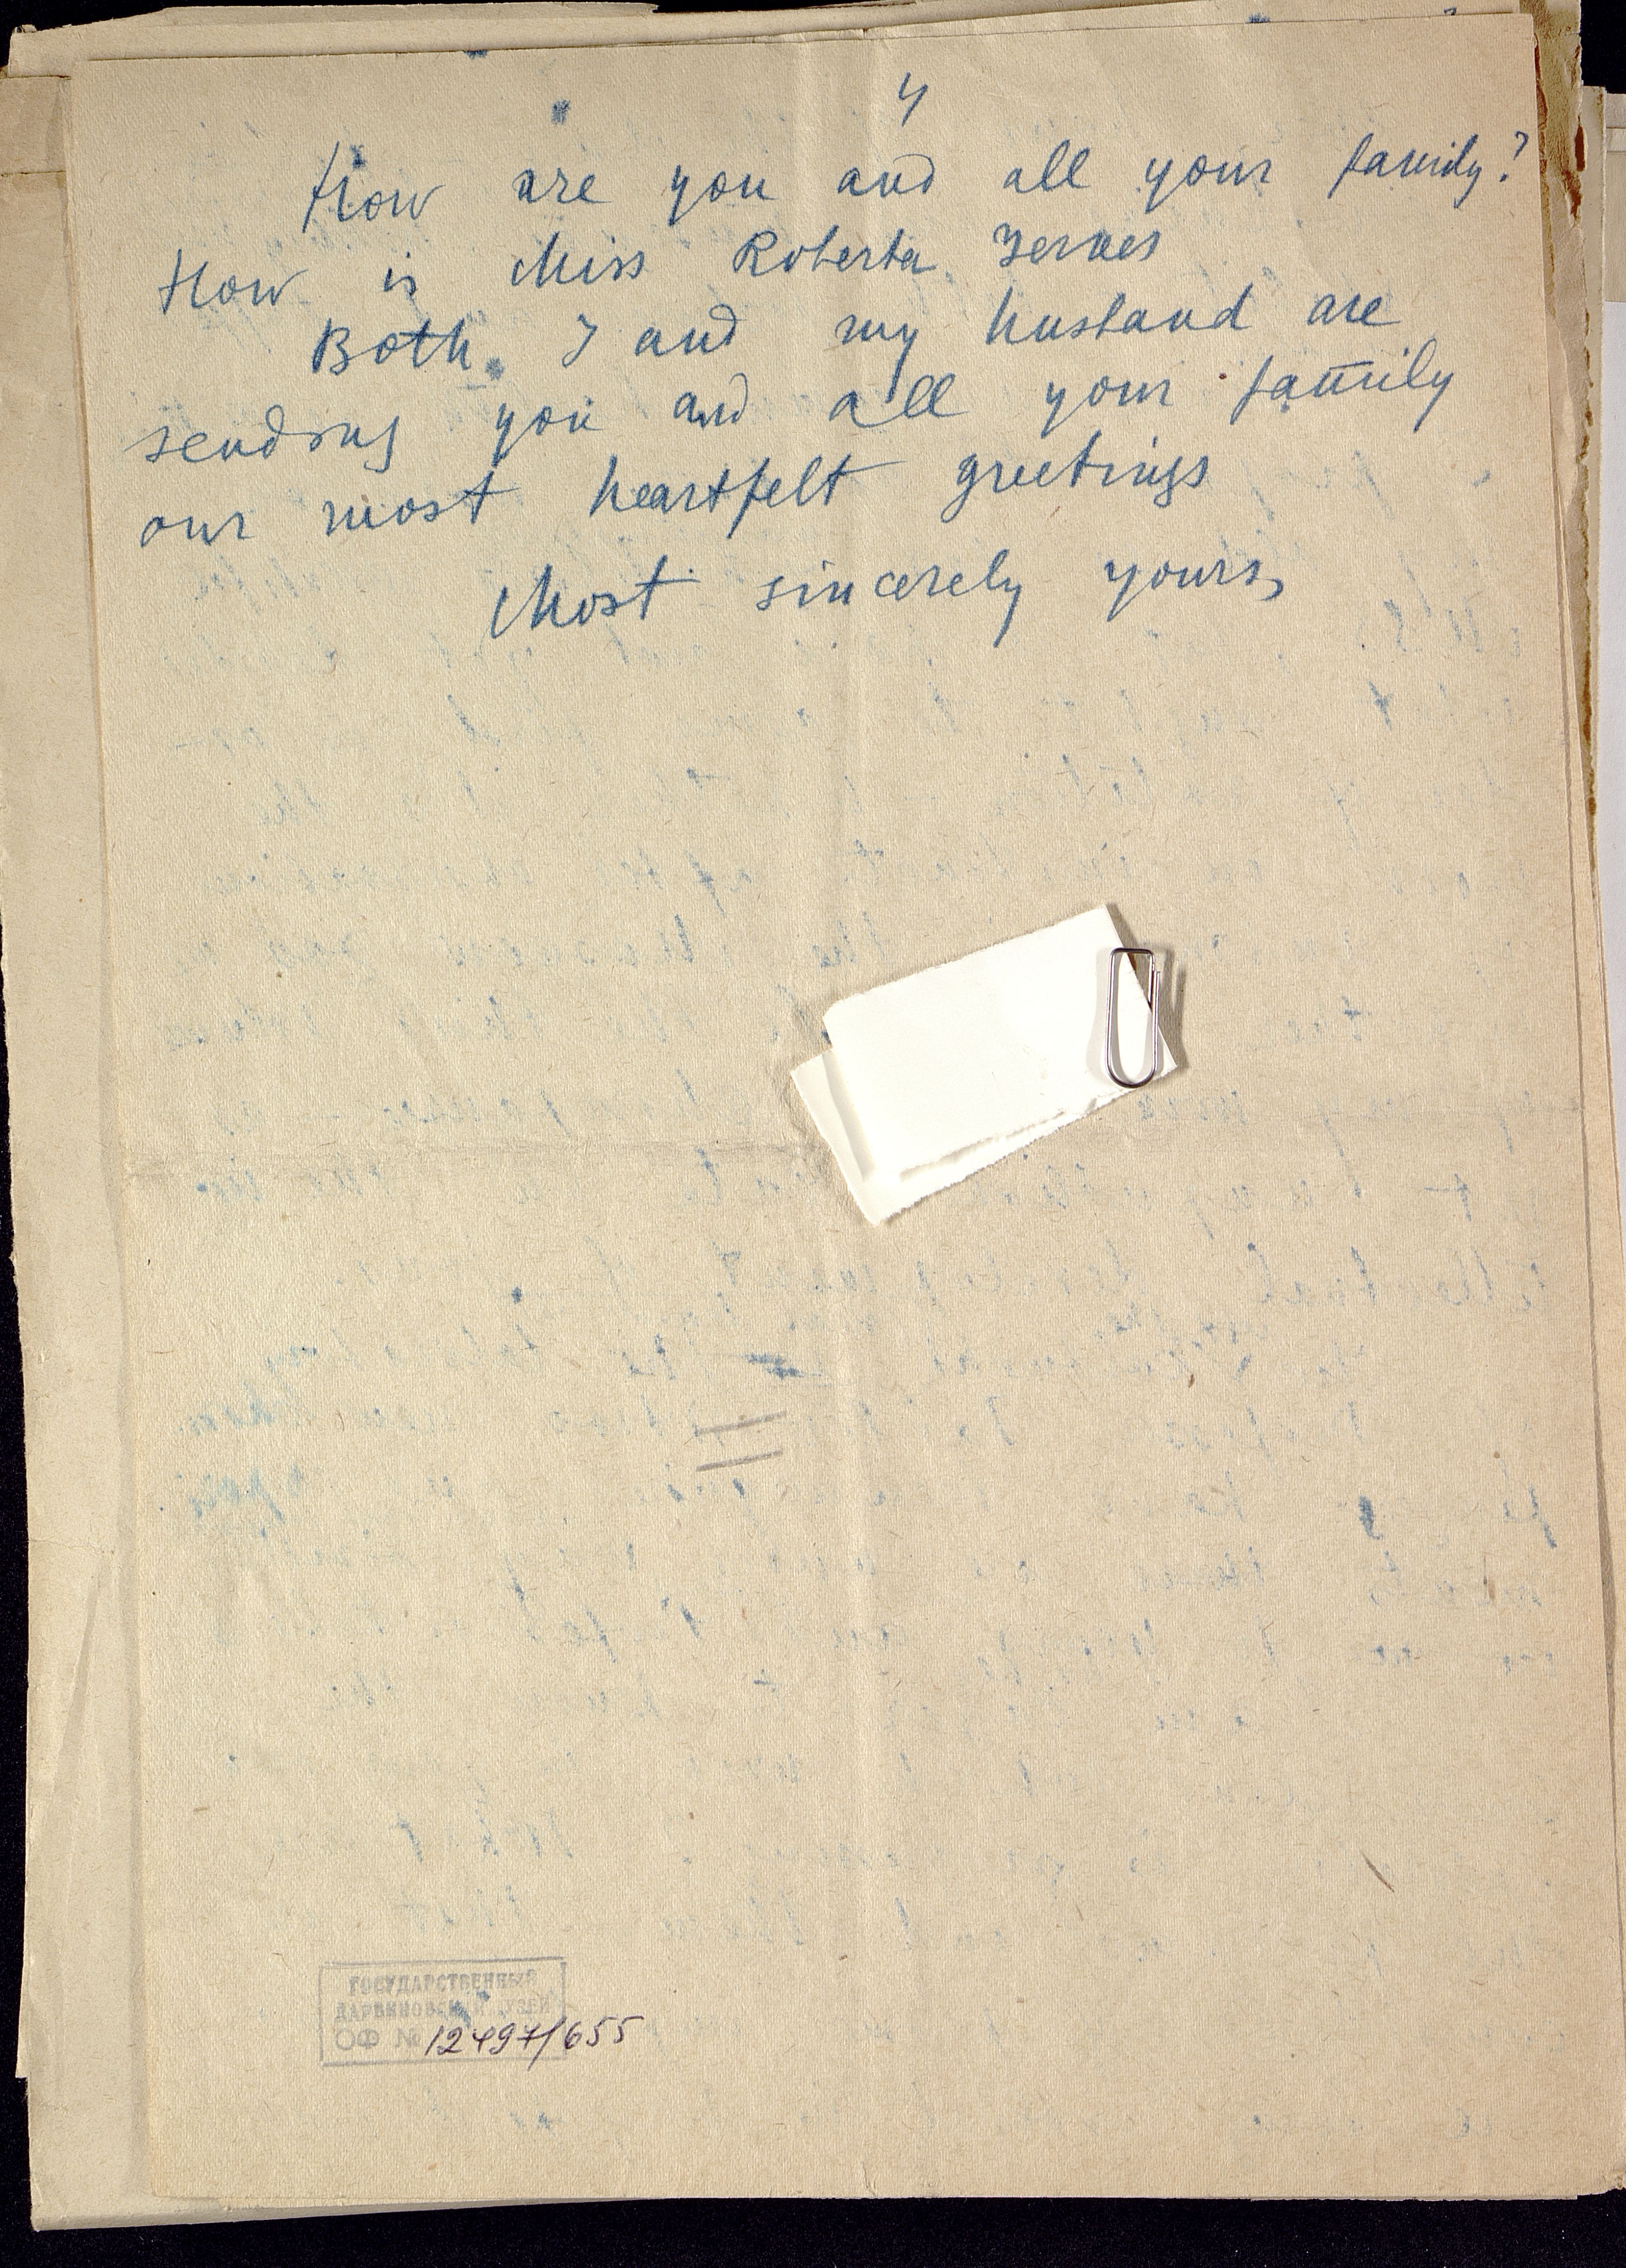 4
How are you and all your family?
How is Miss Roberta Yerkes
Both I and my husband are
sending you and all your family
our most heartfelt greetings
Most sincerely yours,
ГОСУДАРСТВЕННЫЙ
ДАРВИНОВСКИЙ МУЗЕЙ
ОФ № 12497/655